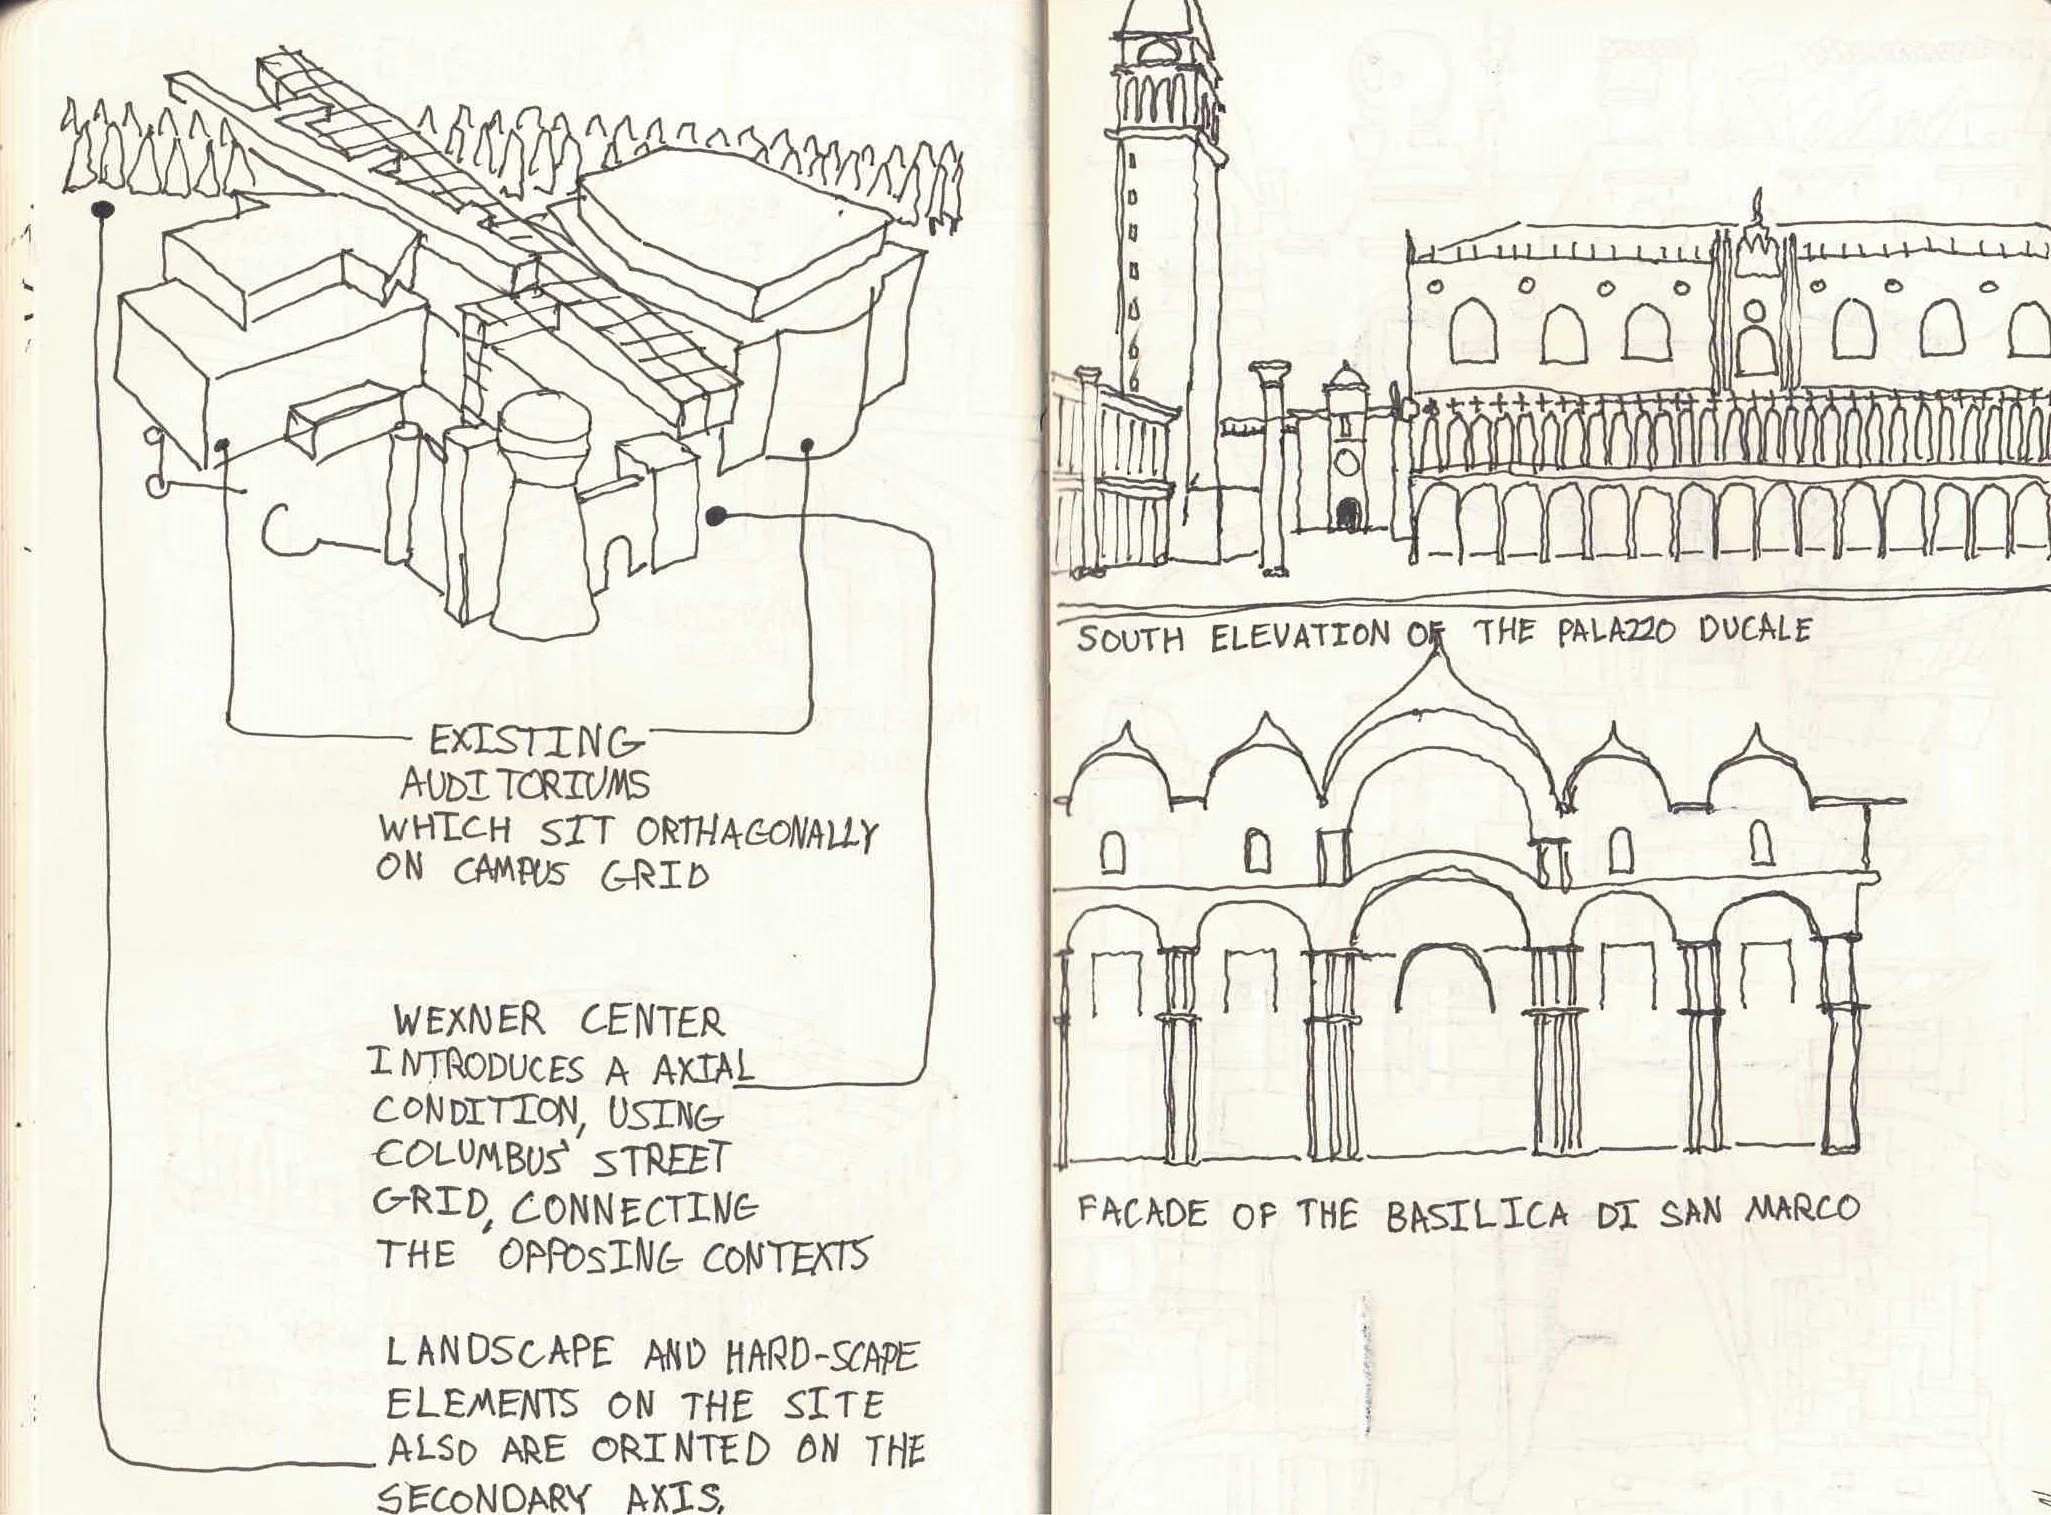 EXISTING
AUDITORIUMS
WHICH SIT ORTHAGONALLY
ON CAMPUS GRID
WEXNER CENTER
INTRODUCES A AXIAL
CONDITION, USING
COLUMBUS' STREET
GRID, CONNECTING
THE OPPOSING CONTEXTS
LANDSCAPE AND HARD-SCAPE
ELEMENTS ON THE SITE
ALSO ARE ORINTED ON THE
SECONDARY AXIS.
SOUTH ELEVATION OF THE PALAZZO DUCALE
FACADE OF THE BASILICA DI SAN MARCO